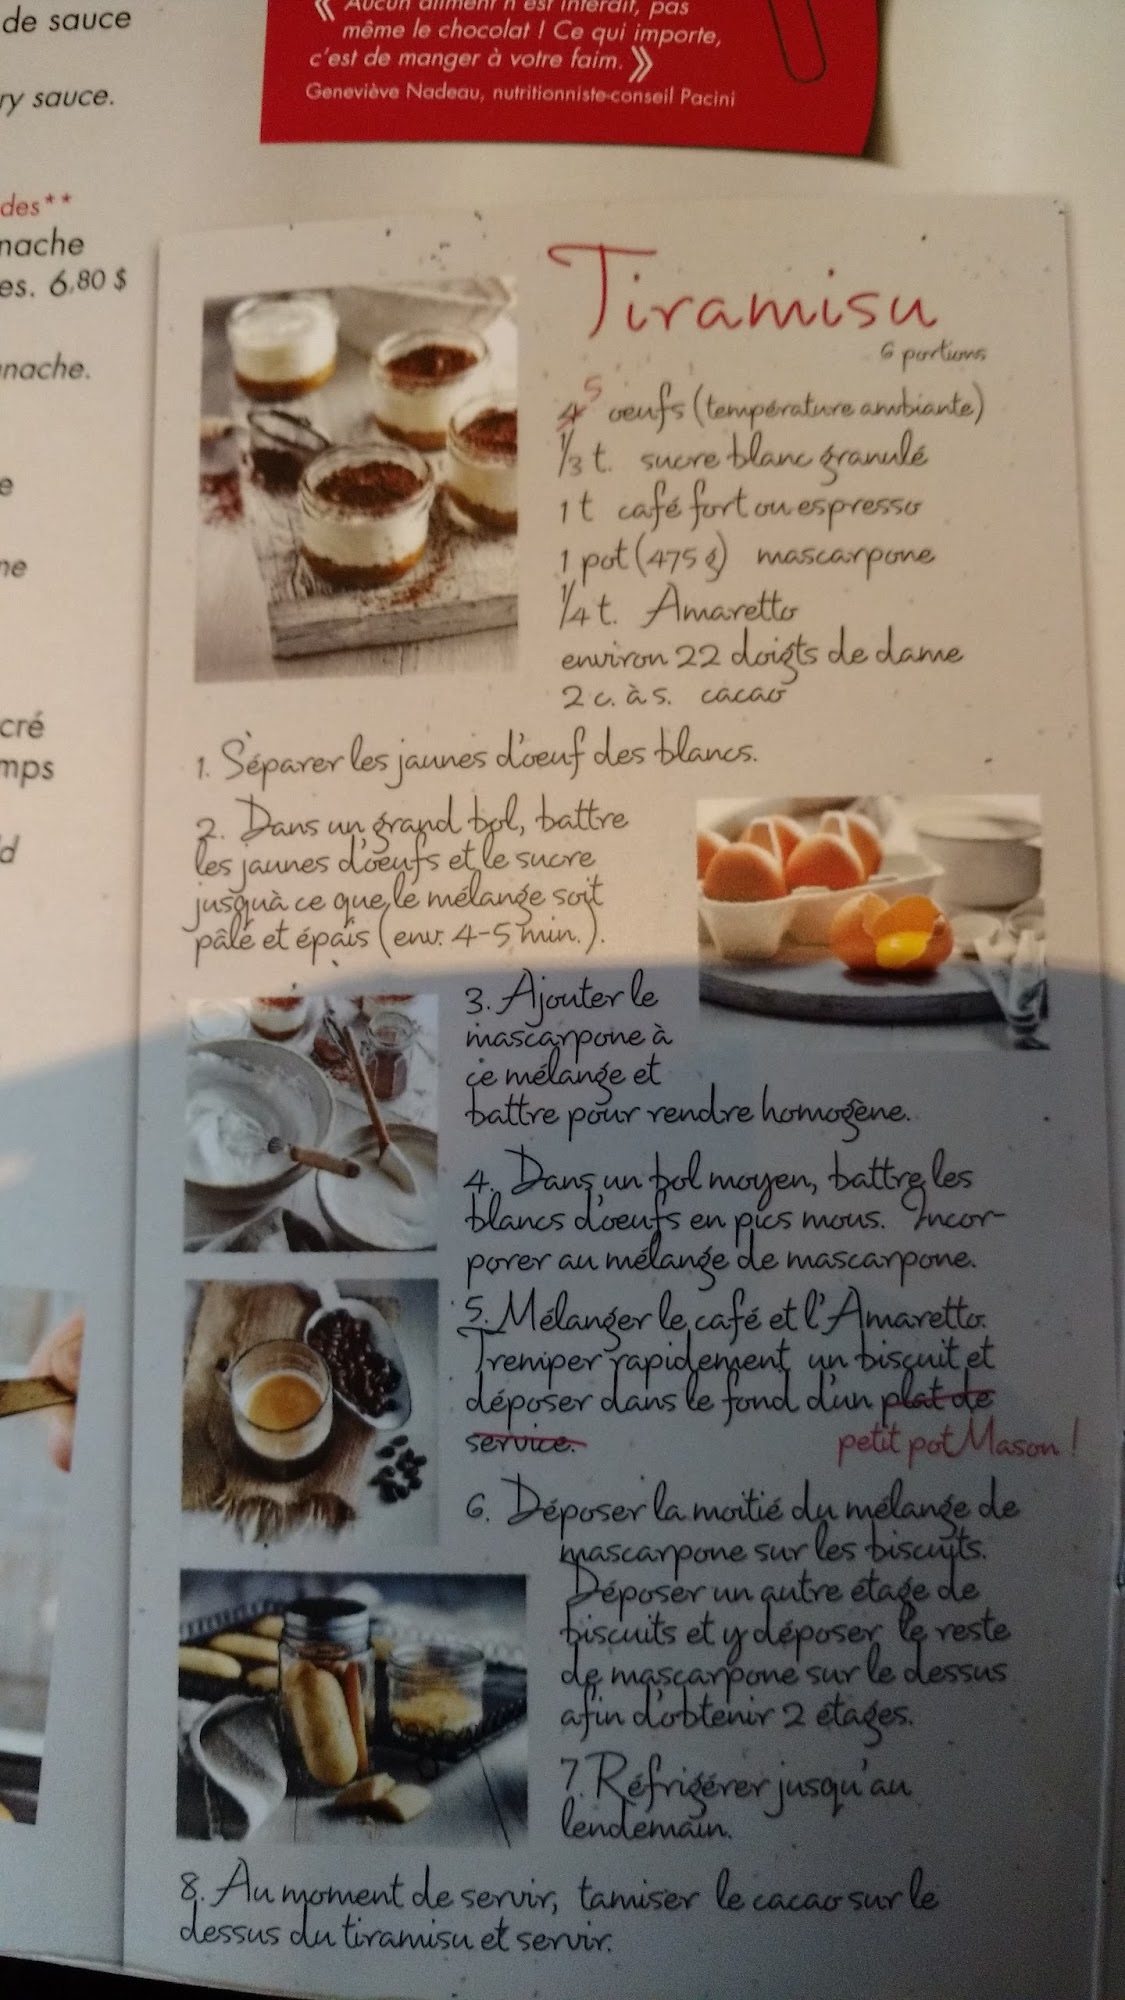 de sauce
ry sauce.
des**
nache
es. 6,80 $
nache.
e
ne
cré
mps
d
« Aucun aliment n'est interdit, pas
même le chocolat ! Ce qui importe,
c'est de manger à votre faim. »
Geneviève Nadeau, nutritionniste-conseil Pacini
Tiramisu
6 portions
4 5 oeufs (température ambiante)
1/3 t. sucre blanc granulé
1 t café fort ou espresso
1 pot (475 g) mascarpone
1/4 t. Amaretto
environ 22 doigts de dame
2 c. à s. cacao
1. Séparer les jaunes d'oeuf des blancs.
2. Dans un grand bol, battre
les jaunes d'oeufs et le sucre
jusquà ce que le mélange soit
pâle et épais (env. 4-5 min.).
3. Ajouter le
mascarpone à
ce mélange et
battre pour rendre homogène.
4. Dans un bol moyen, battre les
blancs d'oeufs en pics mous. Incor-
porer au mélange de mascarpone.
5. Mélanger le café et l'Amaretto.
Tremper rapidement un biscuit et
déposer dans le fond d'un plat de
service. petit pot Mason !
6. Déposer la moitié du mélange de
mascarpone sur les biscuits.
Déposer un autre étage de
biscuits et y déposer le reste
de mascarpone sur le dessus
afin d'obtenir 2 étages.
7. Réfrigérer jusqu'au
lendemain.
8. Au moment de servir, tamiser le cacao sur le
dessus du tiramisu et servir.